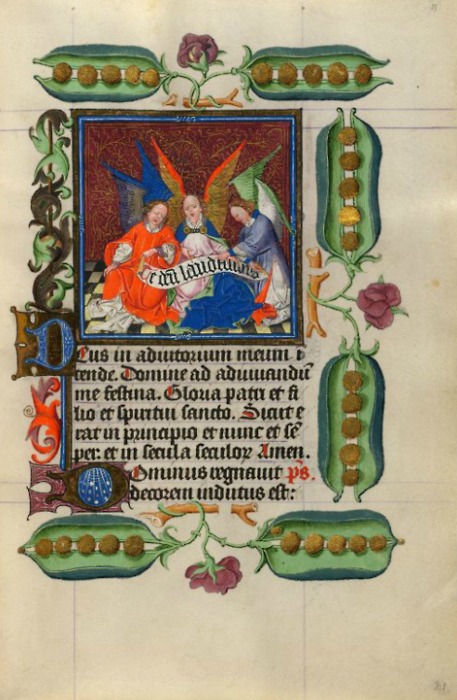 Te deū laudamus
Deus in adiutorium meum i
tende. Domine ad adiuuandū
me festina. Gloria patri et fi
lio et spiritui sancto. Sicut e
rat in principio et nunc et sē
per: et in secula seculoꝝ Amen.
Dominus regnauit p̄s.
decorem indutus est: